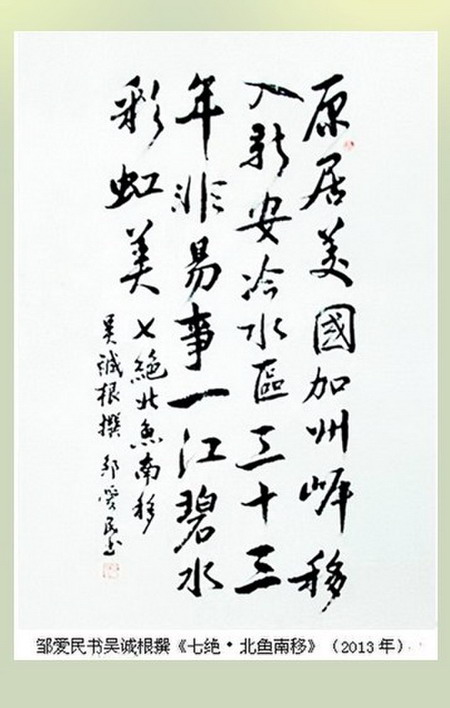 原居美國加州岸移
入新安冷水區三十三
年非易事一江碧水
彩虹美
七絕北魚南移
吴誠根撰 邹愛民书
邹爱民书吴诚根撰《七绝·北鱼南移》（2013年）